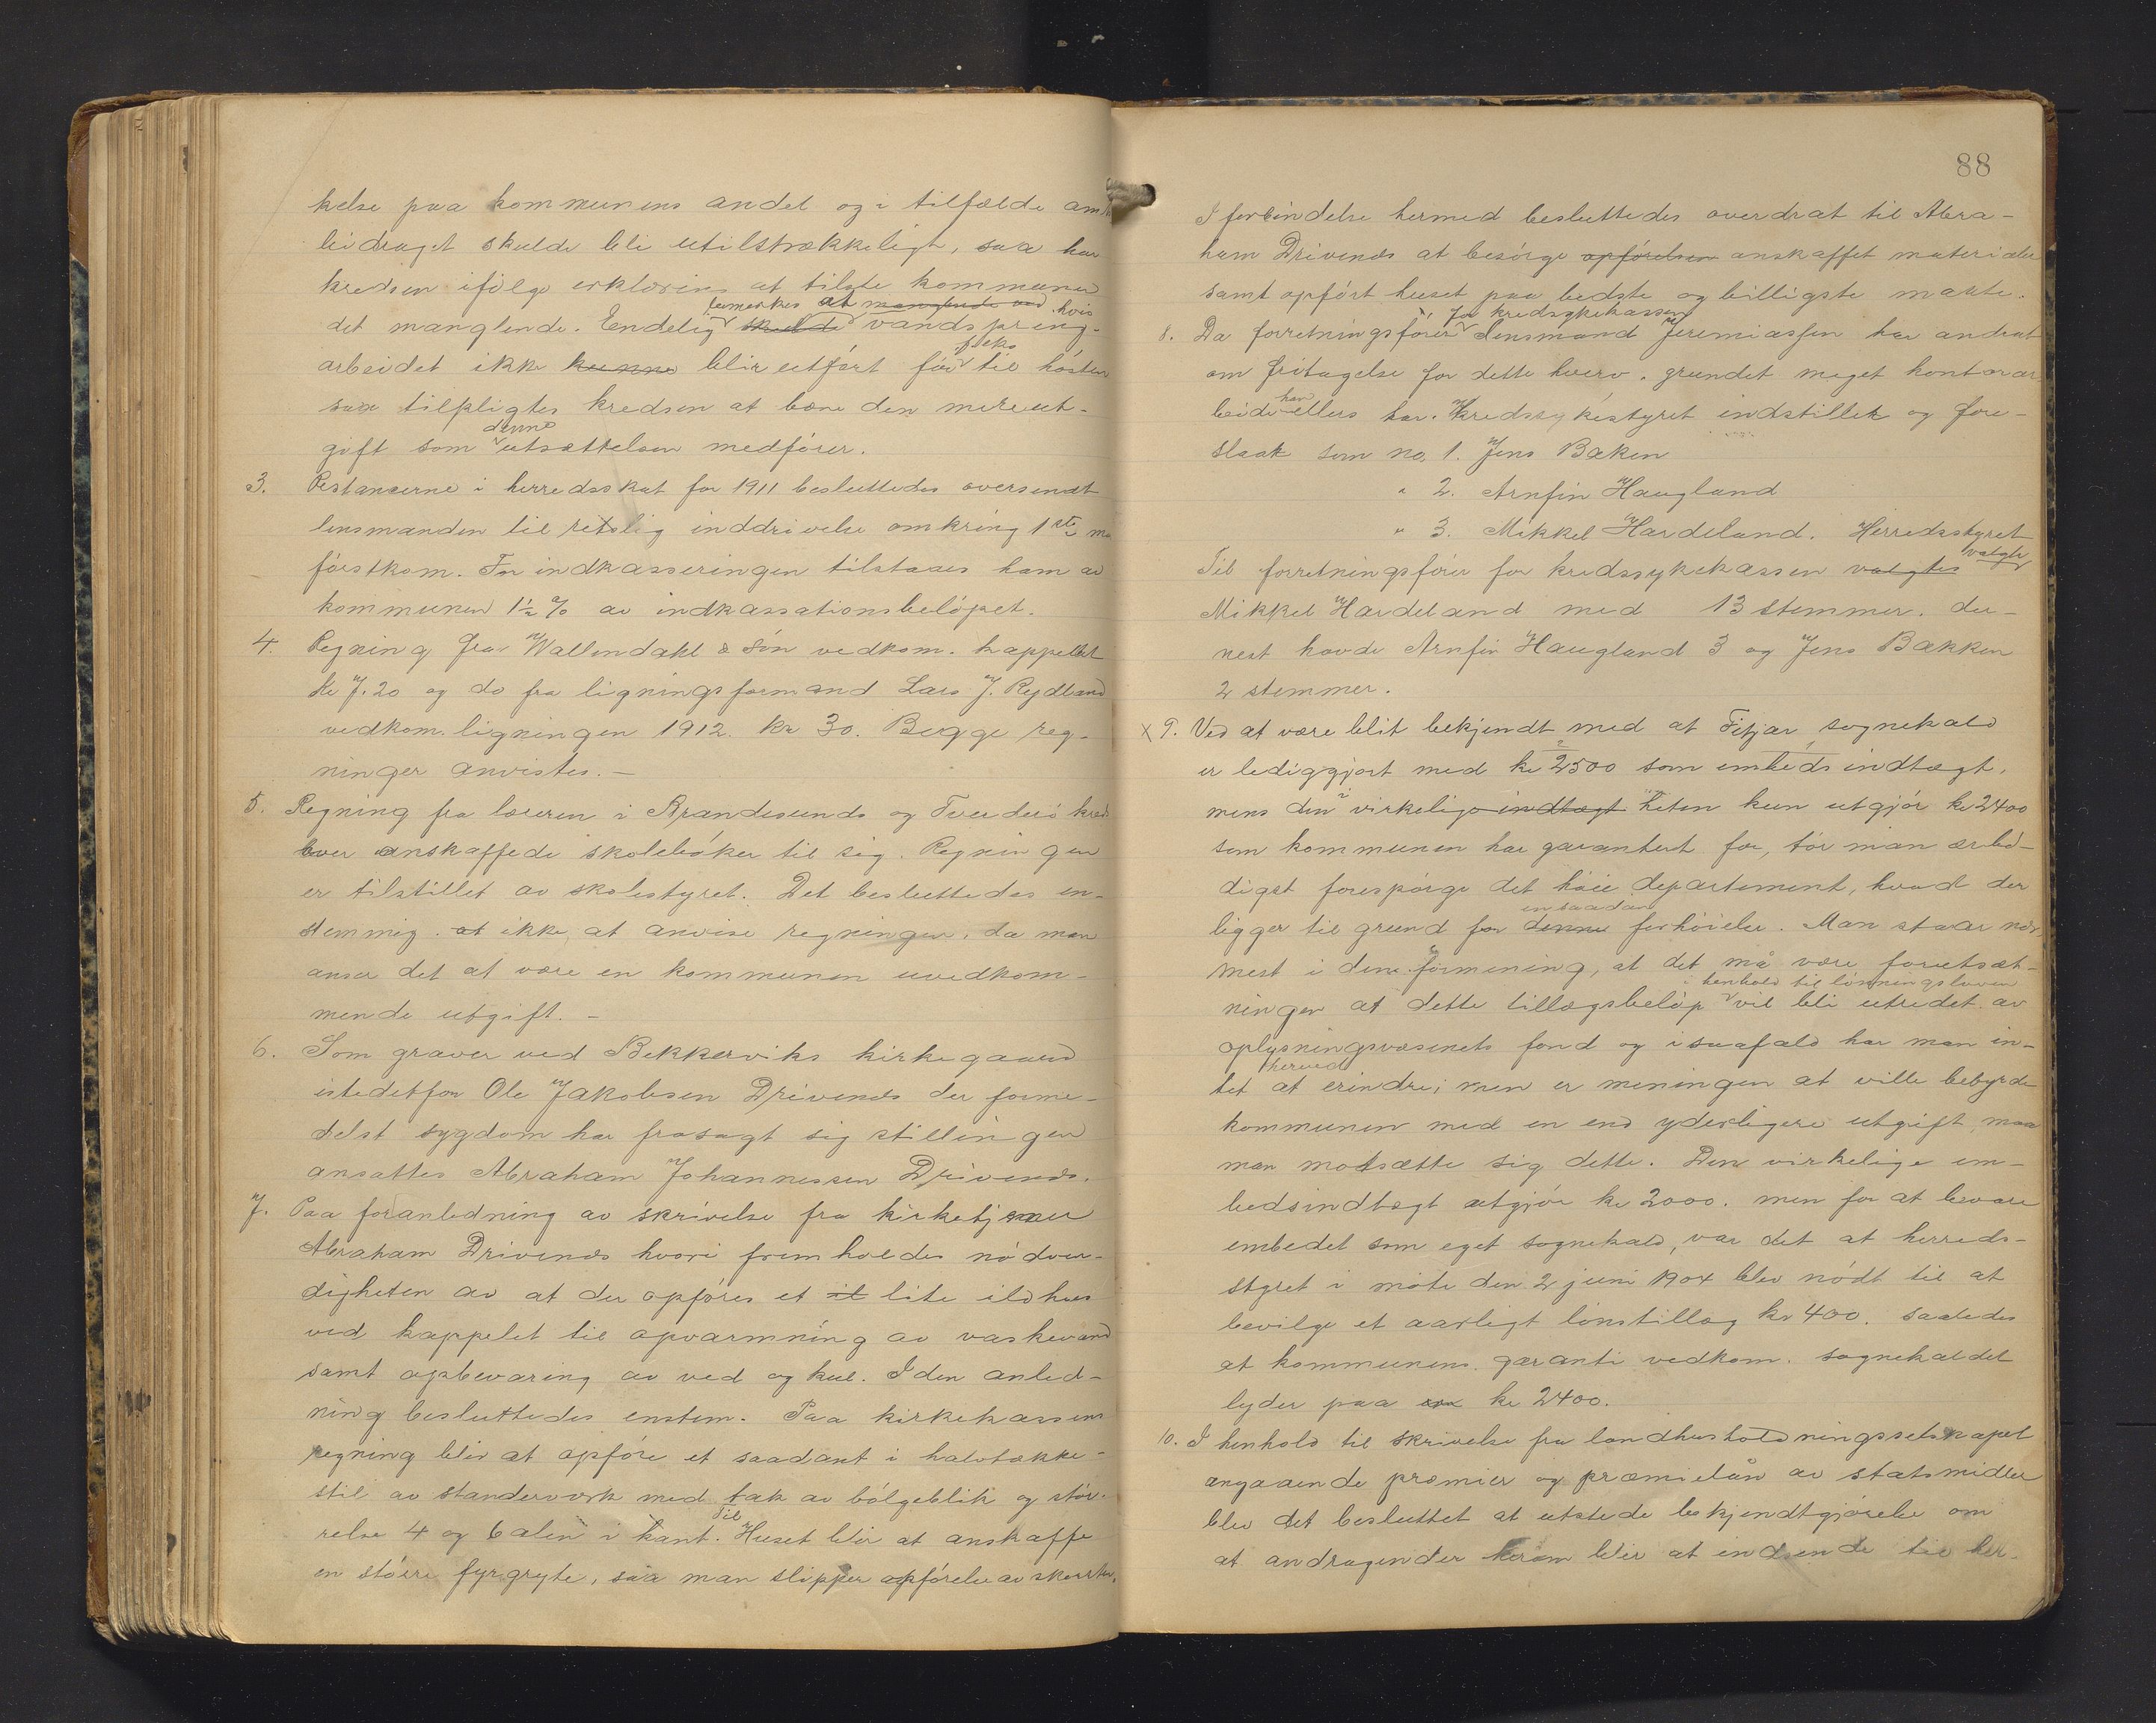 kelse paa kommunens andel og i tilfælde amts
bidraget skulde bli utilstrækkeligt, saa har
kredsen ifølge erklæring at tilste kommunen
bemerkes at manglende ved hvis
det manglende. Endelig skulde vandspreng-
f.eks
arbeidet ikke kunne blir utført før til høsten
saa tilpligtes kredsen at bære den mereut-
denne
gift som utsættelsen medfører.
3. Restancerne i herredsskat for 1911 besluttedes oversendt
lensmanden til retslig inddrivelse omkring 1ste ma
førstkom. For indkasseringen tilstaaes ham av
kommunen 1½ % av indkassationsbeløpet.
4. Regning fra Wallendahl & Søn vedkom. kappellet
Kr 7.20 og do fra ligningsformand Lars J. Rydland
vedkom. ligningen 1912. kr 30. Begge reg-
ninger anvistes. –
5. Regning fra læreren i Brandesunds og Tverderø kreds
over anskaffede skolebøker til sig. Regningen
er tilstillet av skolestyret. Det besluttedes en-
stemmig at ikke at anvise regningen, da man
anser det at være en kommunen uvedkom-
mende utgift. –
6. Som graver ved Bekkerviks kirkegaard
istedetfor Ole Jakobsen Drivenes der forme-
delst sygdom har frasagt sig stillingen
ansattes Abraham Johannessen Drivenes.
7. Paa foranledning av skrivelse fra kirketjener
Abraham Drivenes hvori fremholdes nødven-
digheten av at der opføres et it lite ildhus
ved kappelet til opvarmning av vaskevand
samt opbevaring av ved og kul. I den anled-
ning besluttedes enstem. Paa kirkekassens
regning blir at opføre et saadant i halvtække-
stil av standerverk med tak av bølgeblik og stør-
Til
relse 4 og 6 alen i kant. Huset blir at anskaffe
en større fyrgryte, saa man slipper opførelse av skorsten.
88
I forbindelse hermed besluttedes overdrat til Abra-
ham Drivenes at besørge opførelsen anskaffet materialer
samt opført huset paa bedste og billigste maate.
for kredssykekassen
8. Da forretningsfører lensmand Jeremiassen har andrat
om fritagelse for dette hverv, grundet meget kontorar
han
beide ellers har. Kredssykestyret indstillet og fore-
slaat som no. 1. Jens Bakken
" 2. Arnfin Haugland
" 3. Mikkel Hardeland. Herredsstyret
valgte
Til forretningsfører for kredssykekassen valgtes
Mikkel Hardeland med 13 stemmer. der-
nest havde Arnfin Haugland 3 og Jens Bakken
2 stemmer.
x 9. Ved at være blit bekjendt med at Fitjar sognekald
er lediggjort med kr 2500 som embedsindtægt,
mens den i virkelige indtægt heten kun utgjør kr 2400
som kommunen har garantert for, tør man ærbø-
digst forespørge det høie departement, hvad der
en saadan
ligger til grund for denne forhøielse. Man staar nær
mest i den formening, at det må være forutsæt-
i henhold til lønningsloven
ningen at dette tillægsbeløp vil bli utredet av
oplysningsvæsenets fond og i saafald har man in-
herved
tet at erindre; men er meningen at ville bebyrde
kommunen med en end yderligere utgift, maa
man motsætte sig dette. Den virkelige em-
bedsindtægt utgjør kr 2000. men for at bevare
embedet som eget sognekald, var det at herreds-
styret i møte den 2 juni 1904 blev nødt til at
bevilge et aarligt lønstillæg kr 400. saaledes
at kommunens garanti vedkom. sognekaldet
lyder paa kr 2400.
10. I henhold til skrivelse fra landhusholdningsselskapet
angaaende præmier og præmielån av statsmidler
blev det besluttet at utstede bekjendtgjørelse om
at andragender herom blir at indsende til her-